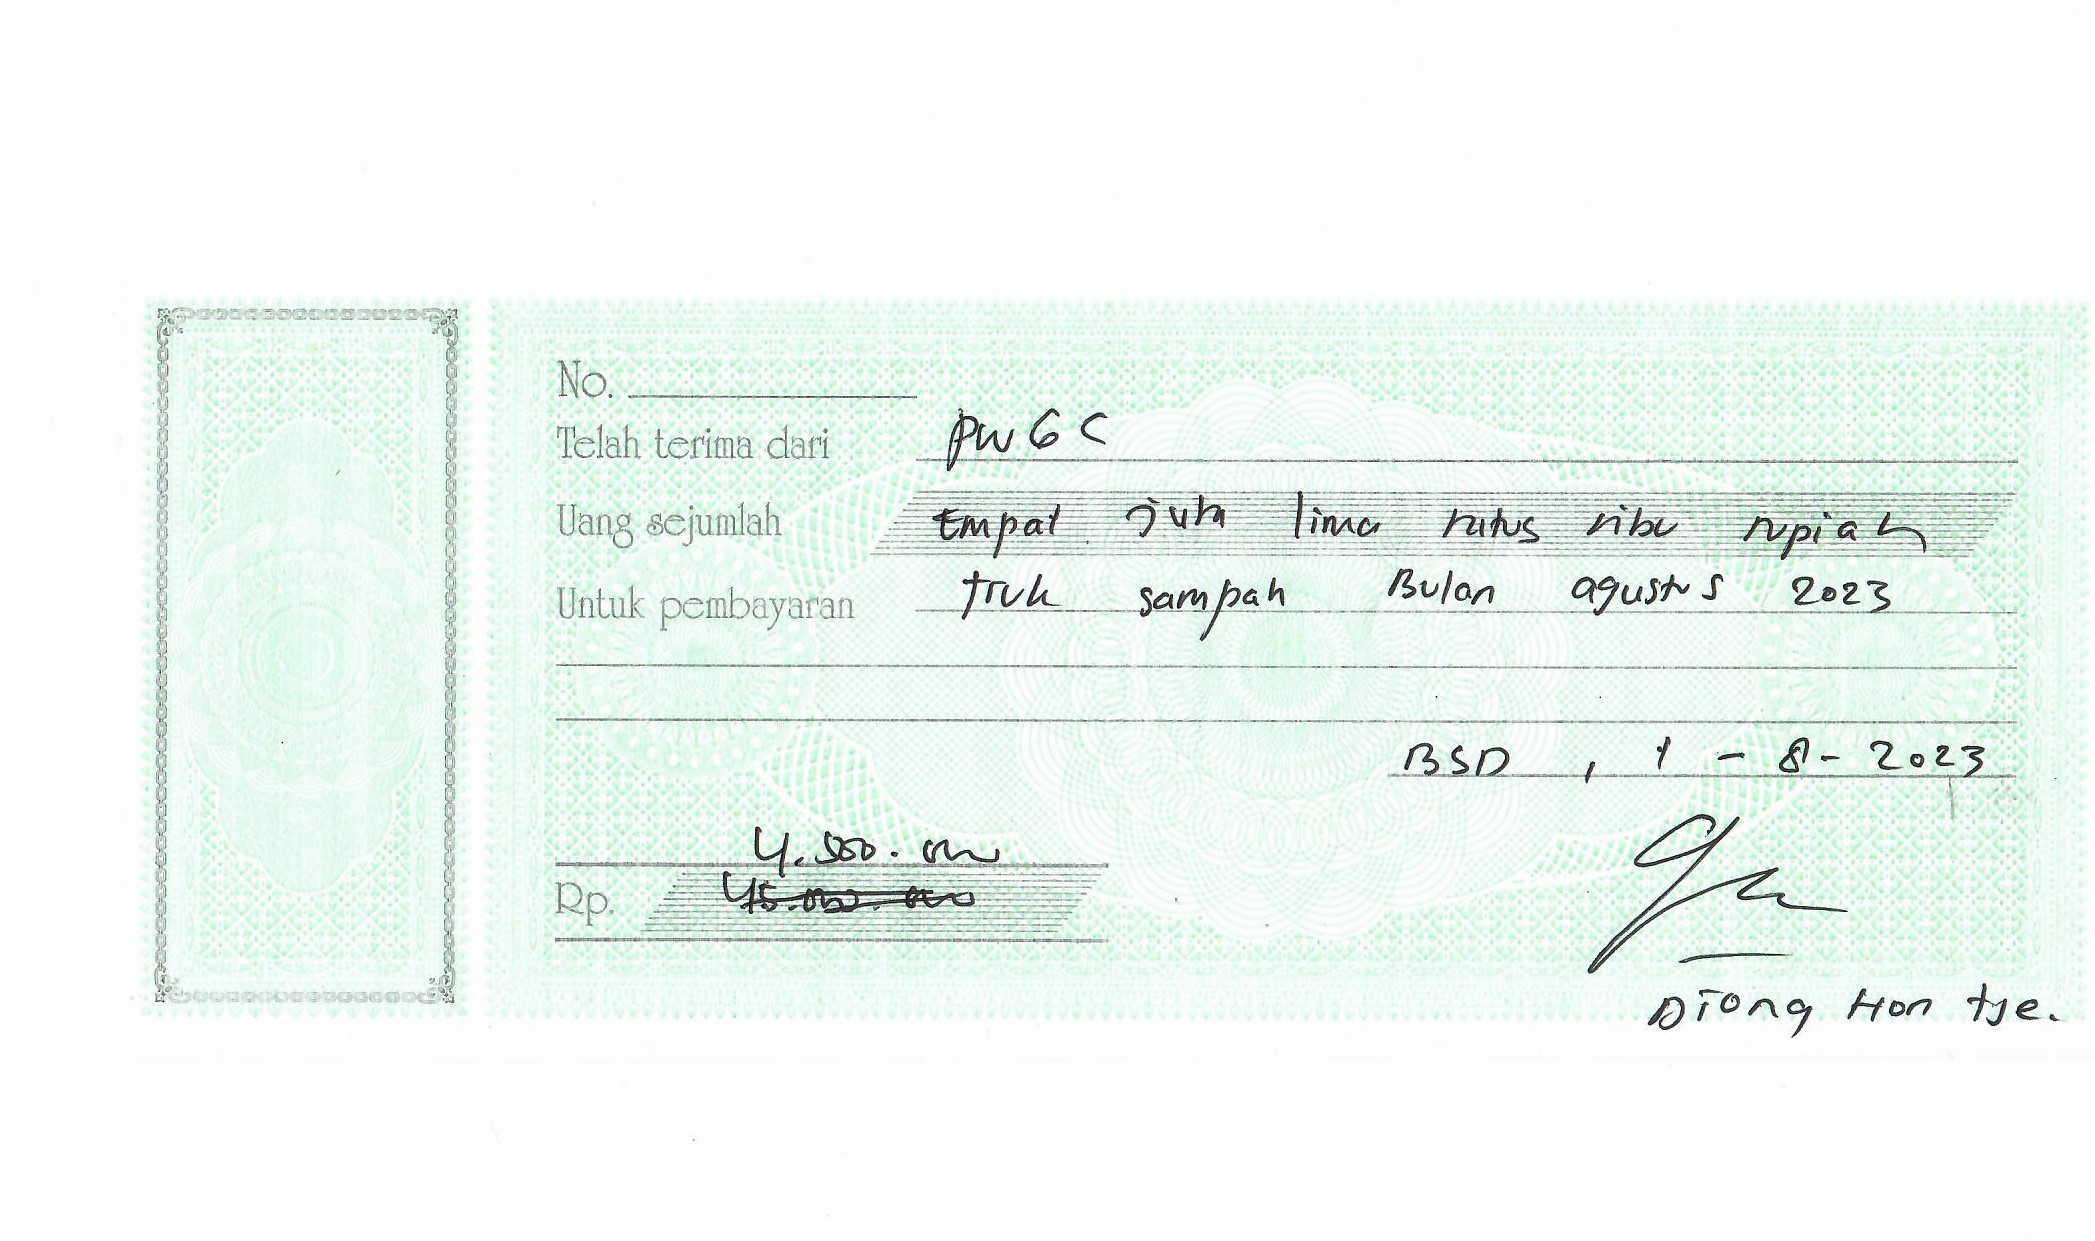 No.
Telah terima dari PWGC
Uang sejumlah Empat juta lima ratus ribu rupiah
Untuk pembayaran truk sampah Bulan agustus 2023
BSD, 1 - 8 - 2023
4.500.000
Rp. 45.000.000
Diong Hon tje.